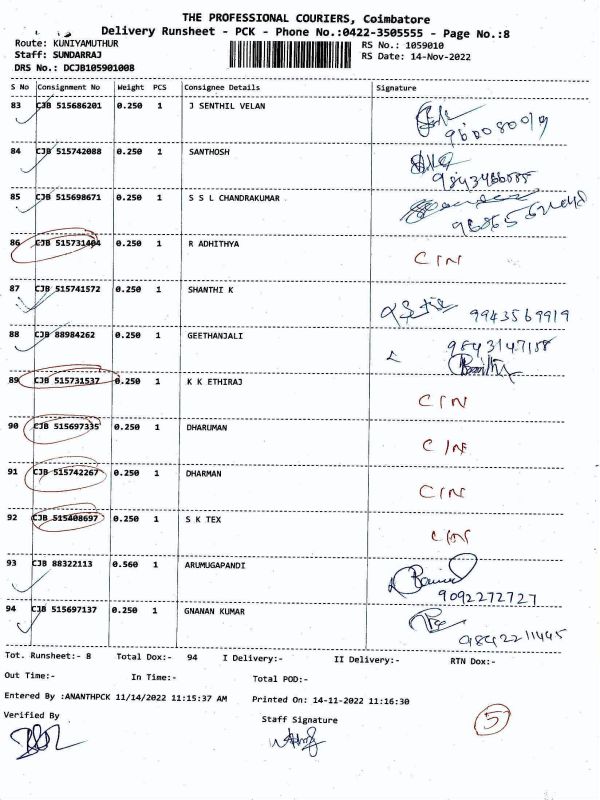 THE PROFESSIONAL COURIERS, Coimbatore
Delivery Runsheet - PCK - Phone No.:0422-3505555 - Page No.:8
Route: KUNIYAMUTHUR
Staff: SUNDARRAJ
DRS No.: DCJB105901008
RS No.: 1059010
RS Date: 14-Nov-2022
S No Consignment No Weight PCS Consignee Details Signature
83 CJB 515686201 0.250 1 J SENTHIL VELAN
84 CJB 515742088 0.250 1 SANTHOSH
85 CJB 515698671 0.250 1 S S L CHANDRAKUMAR
86 CJB 515731404 0.250 1 R ADHITHYA CIN
87 CJB 515741572 0.250 1 SHANTHI K 9943569919
88 CJB 88984262 0.250 1 GEETHANJALI 9843147158
89 CJB 515731537 0.250 1 K K ETHIRAJ CIN
90 CJB 515697335 0.250 1 DHARUMAN CIN
91 CJB 515742267 0.250 1 DHARMAN CIN
92 CJB 515408697 0.250 1 S K TEX CIN
93 CJB 88322113 0.560 1 ARUMUGAPANDI 9092272727
94 CJB 515697137 0.250 1 GNANAN KUMAR 9842211445
Tot. Runsheet:- 8 Total Dox:- 94 I Delivery:- II Delivery:- RTN Dox:-
Out Time:- In Time:- Total POD:-
Entered By :ANANTHPCK 11/14/2022 11:15:37 AM Printed On: 14-11-2022 11:16:30
Verified By Staff Signature
5